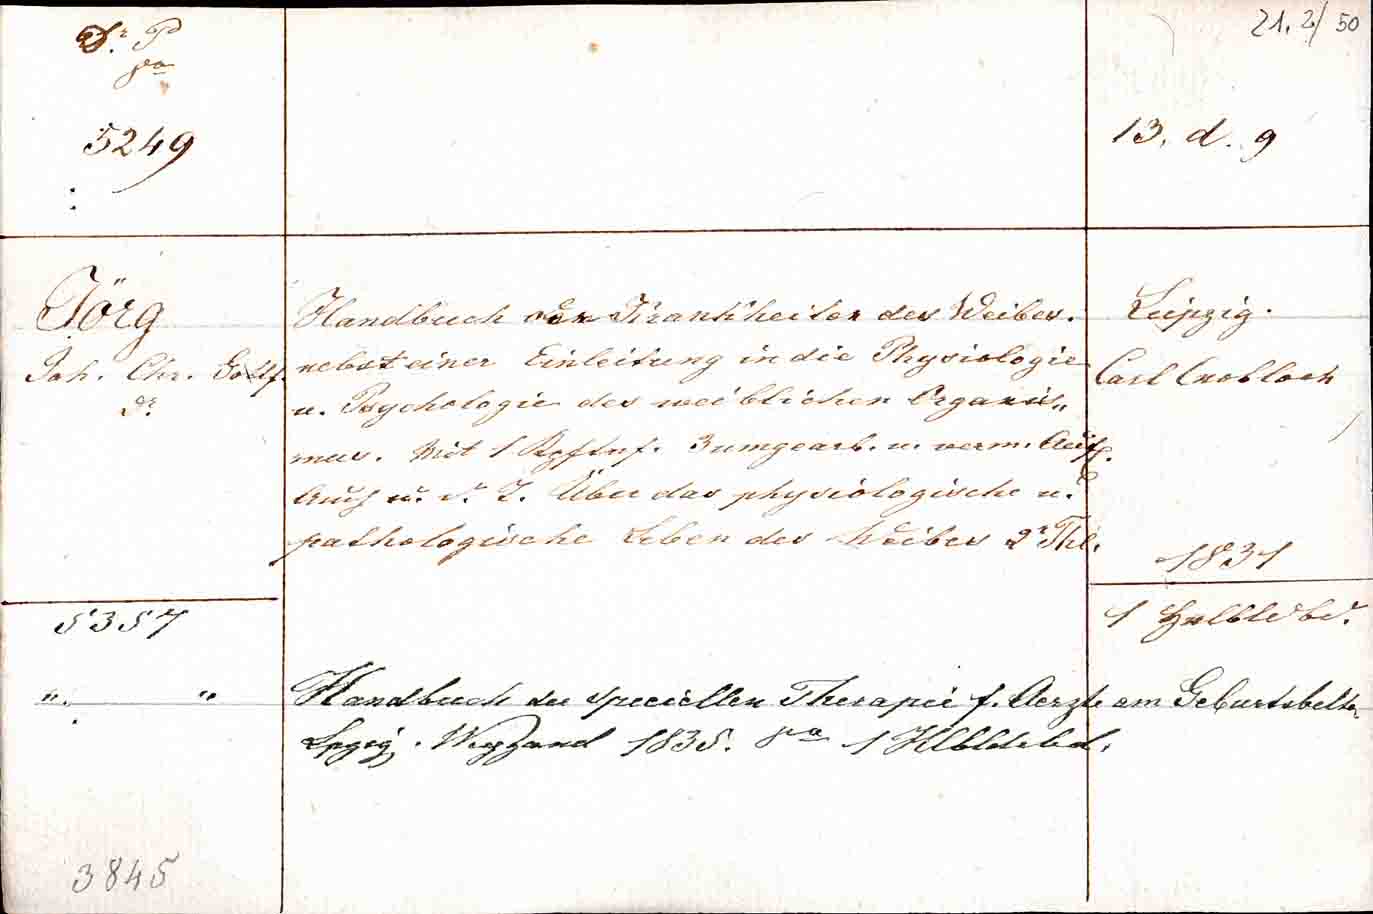 21. 2/50
5249
13. d. 9
Jörg
Joh. Chr. Gottf.
Dr
Handbuch der Krankheiten des Weibes.
nebst einer Einleitung in die Physiologie
u. Psychologie des weiblichen Organis„
mus. Mit 1 Kpftaf. 3 umgearb. u. verm. Aufl.
Auch u. d. T. Über das physiologische u.
pathologische Leben des Weibes 2r Thl.
Leipzig.
Carl Cnobloch
1831
1 Halbldbd.
5357
„ „
Handbuch der speciellen Therapie f. Aerzte am Geburtsbette
Lpzig. Weygand 1835. 1 Hlbldrbd.
3845